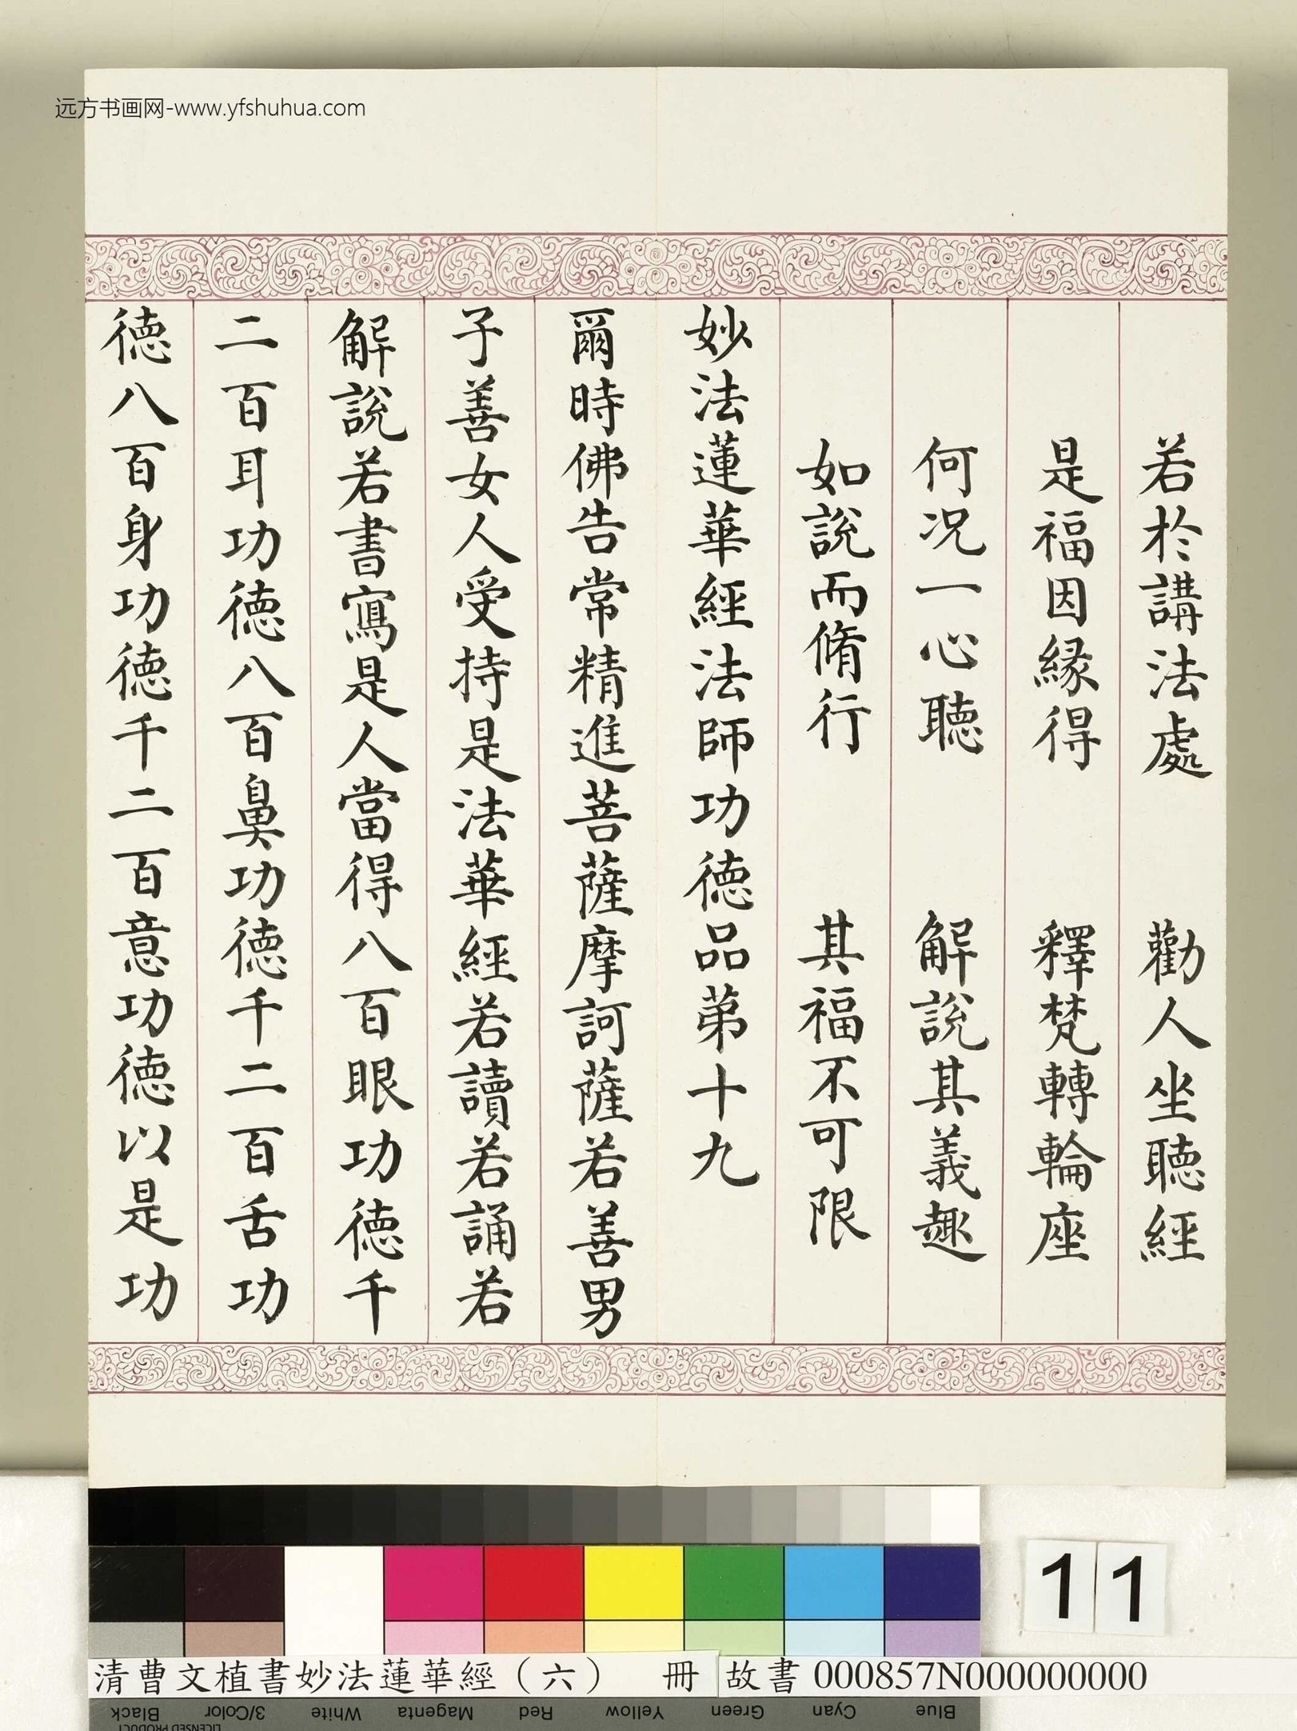 远方书画网-www.yfshuhua.com
若於講法處　勸人坐聽經
是福因緣得　釋梵轉輪座
何况一心聽　解說其義趣
如說而脩行　其福不可限
妙法蓮華經法師功德品第十九
爾時佛告常精進菩薩摩訶薩若善男
子善女人受持是法華經若讀若誦若
解說若書寫是人當得八百眼功德千
二百耳功德八百鼻功德千二百舌功
德八百身功德千二百意功德以是功
11
清曹文植書妙法蓮華經（六）　冊　故書 000857N000000000
Black 3/Color White Magenta Red Yellow Green Cyan Blue
LICENSED PRODUCT